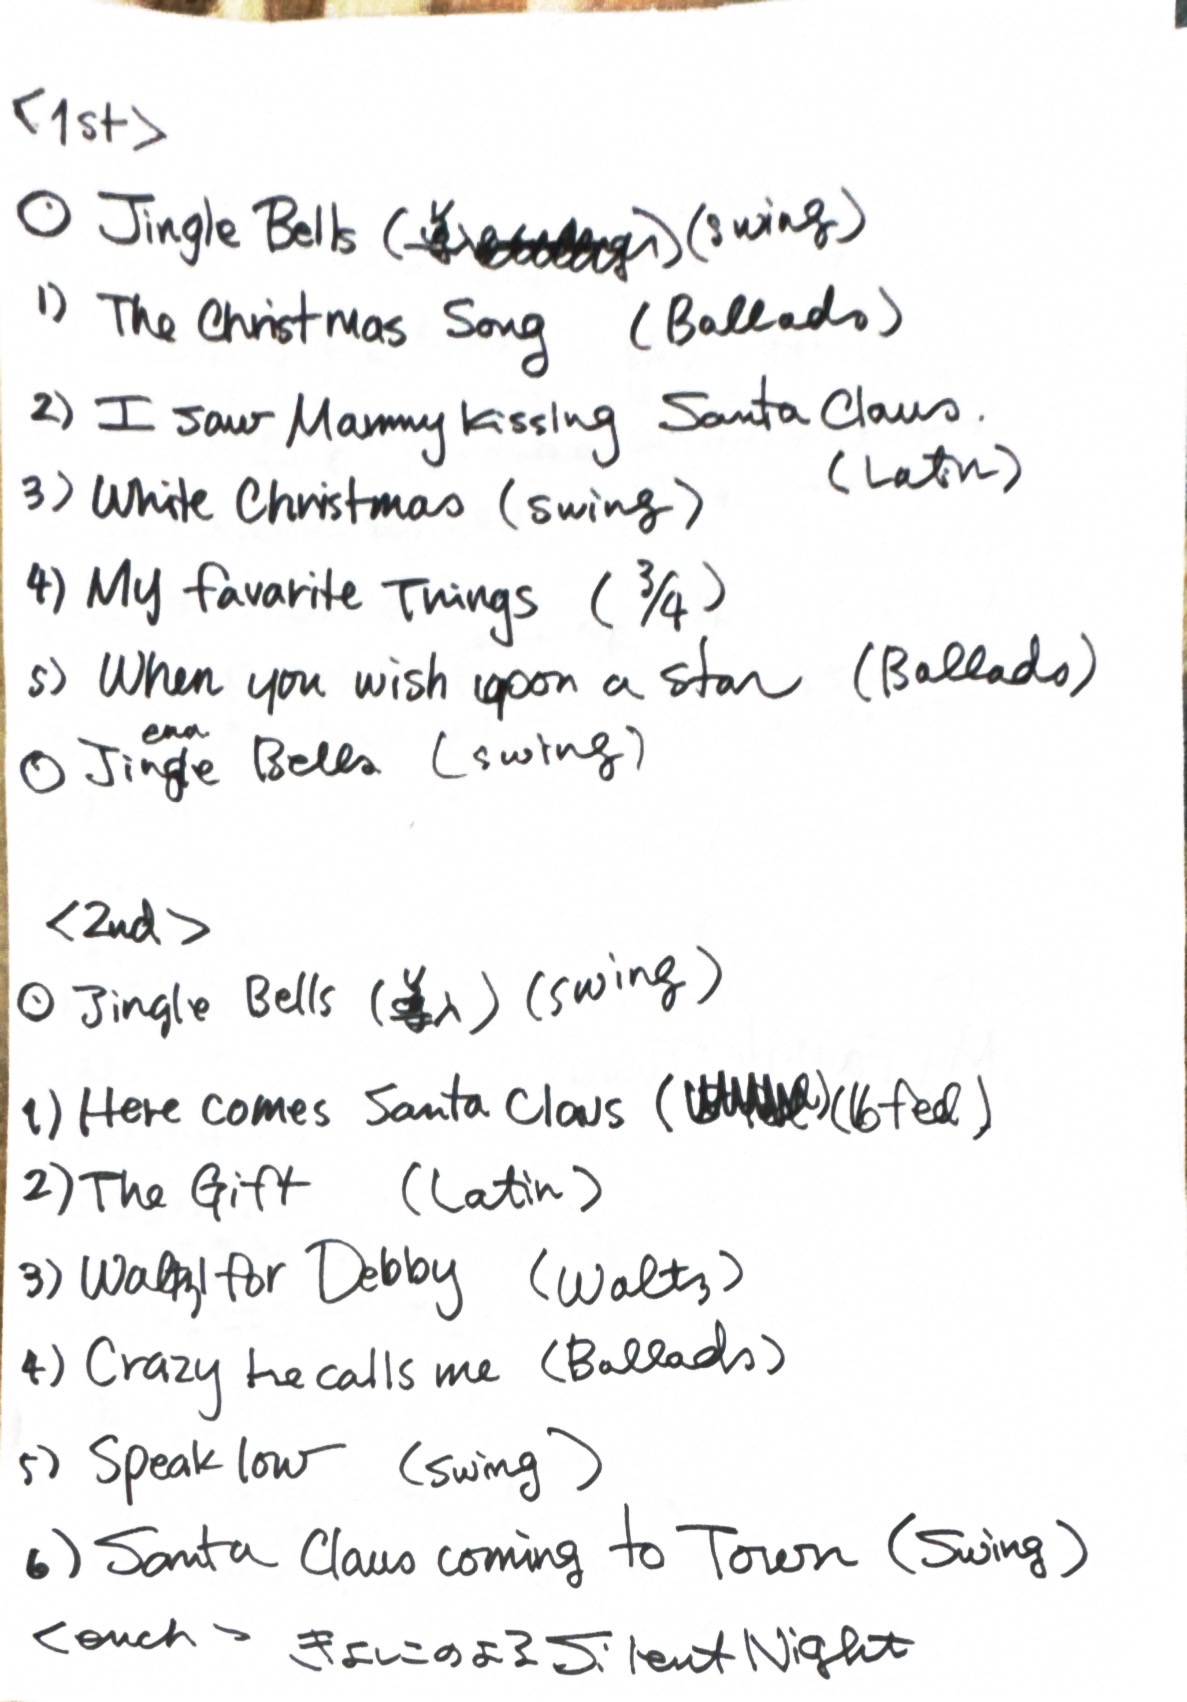 <1st>
○ Jingle Bells ( ) (swing)
1) The Christmas Song (Ballads)
2) I saw Mammy kissing Santa Claus.
(Latin)
3) White Christmas (swing)
4) My favarite Things (3/4)
5) When you wish upon a star (Ballads)
○ Jingle Bells (swing)
<2nd>
○ Jingle Bells ( ) (swing)
1) Here comes Santa Claus ( ) (16 feel)
2) The Gift (Latin)
3) Waltz for Debby (Waltz)
4) Crazy he calls me (Ballads)
5) Speak low (swing)
6) Santa Claus coming to Town (Swing)
きよしこのよる Silent Night